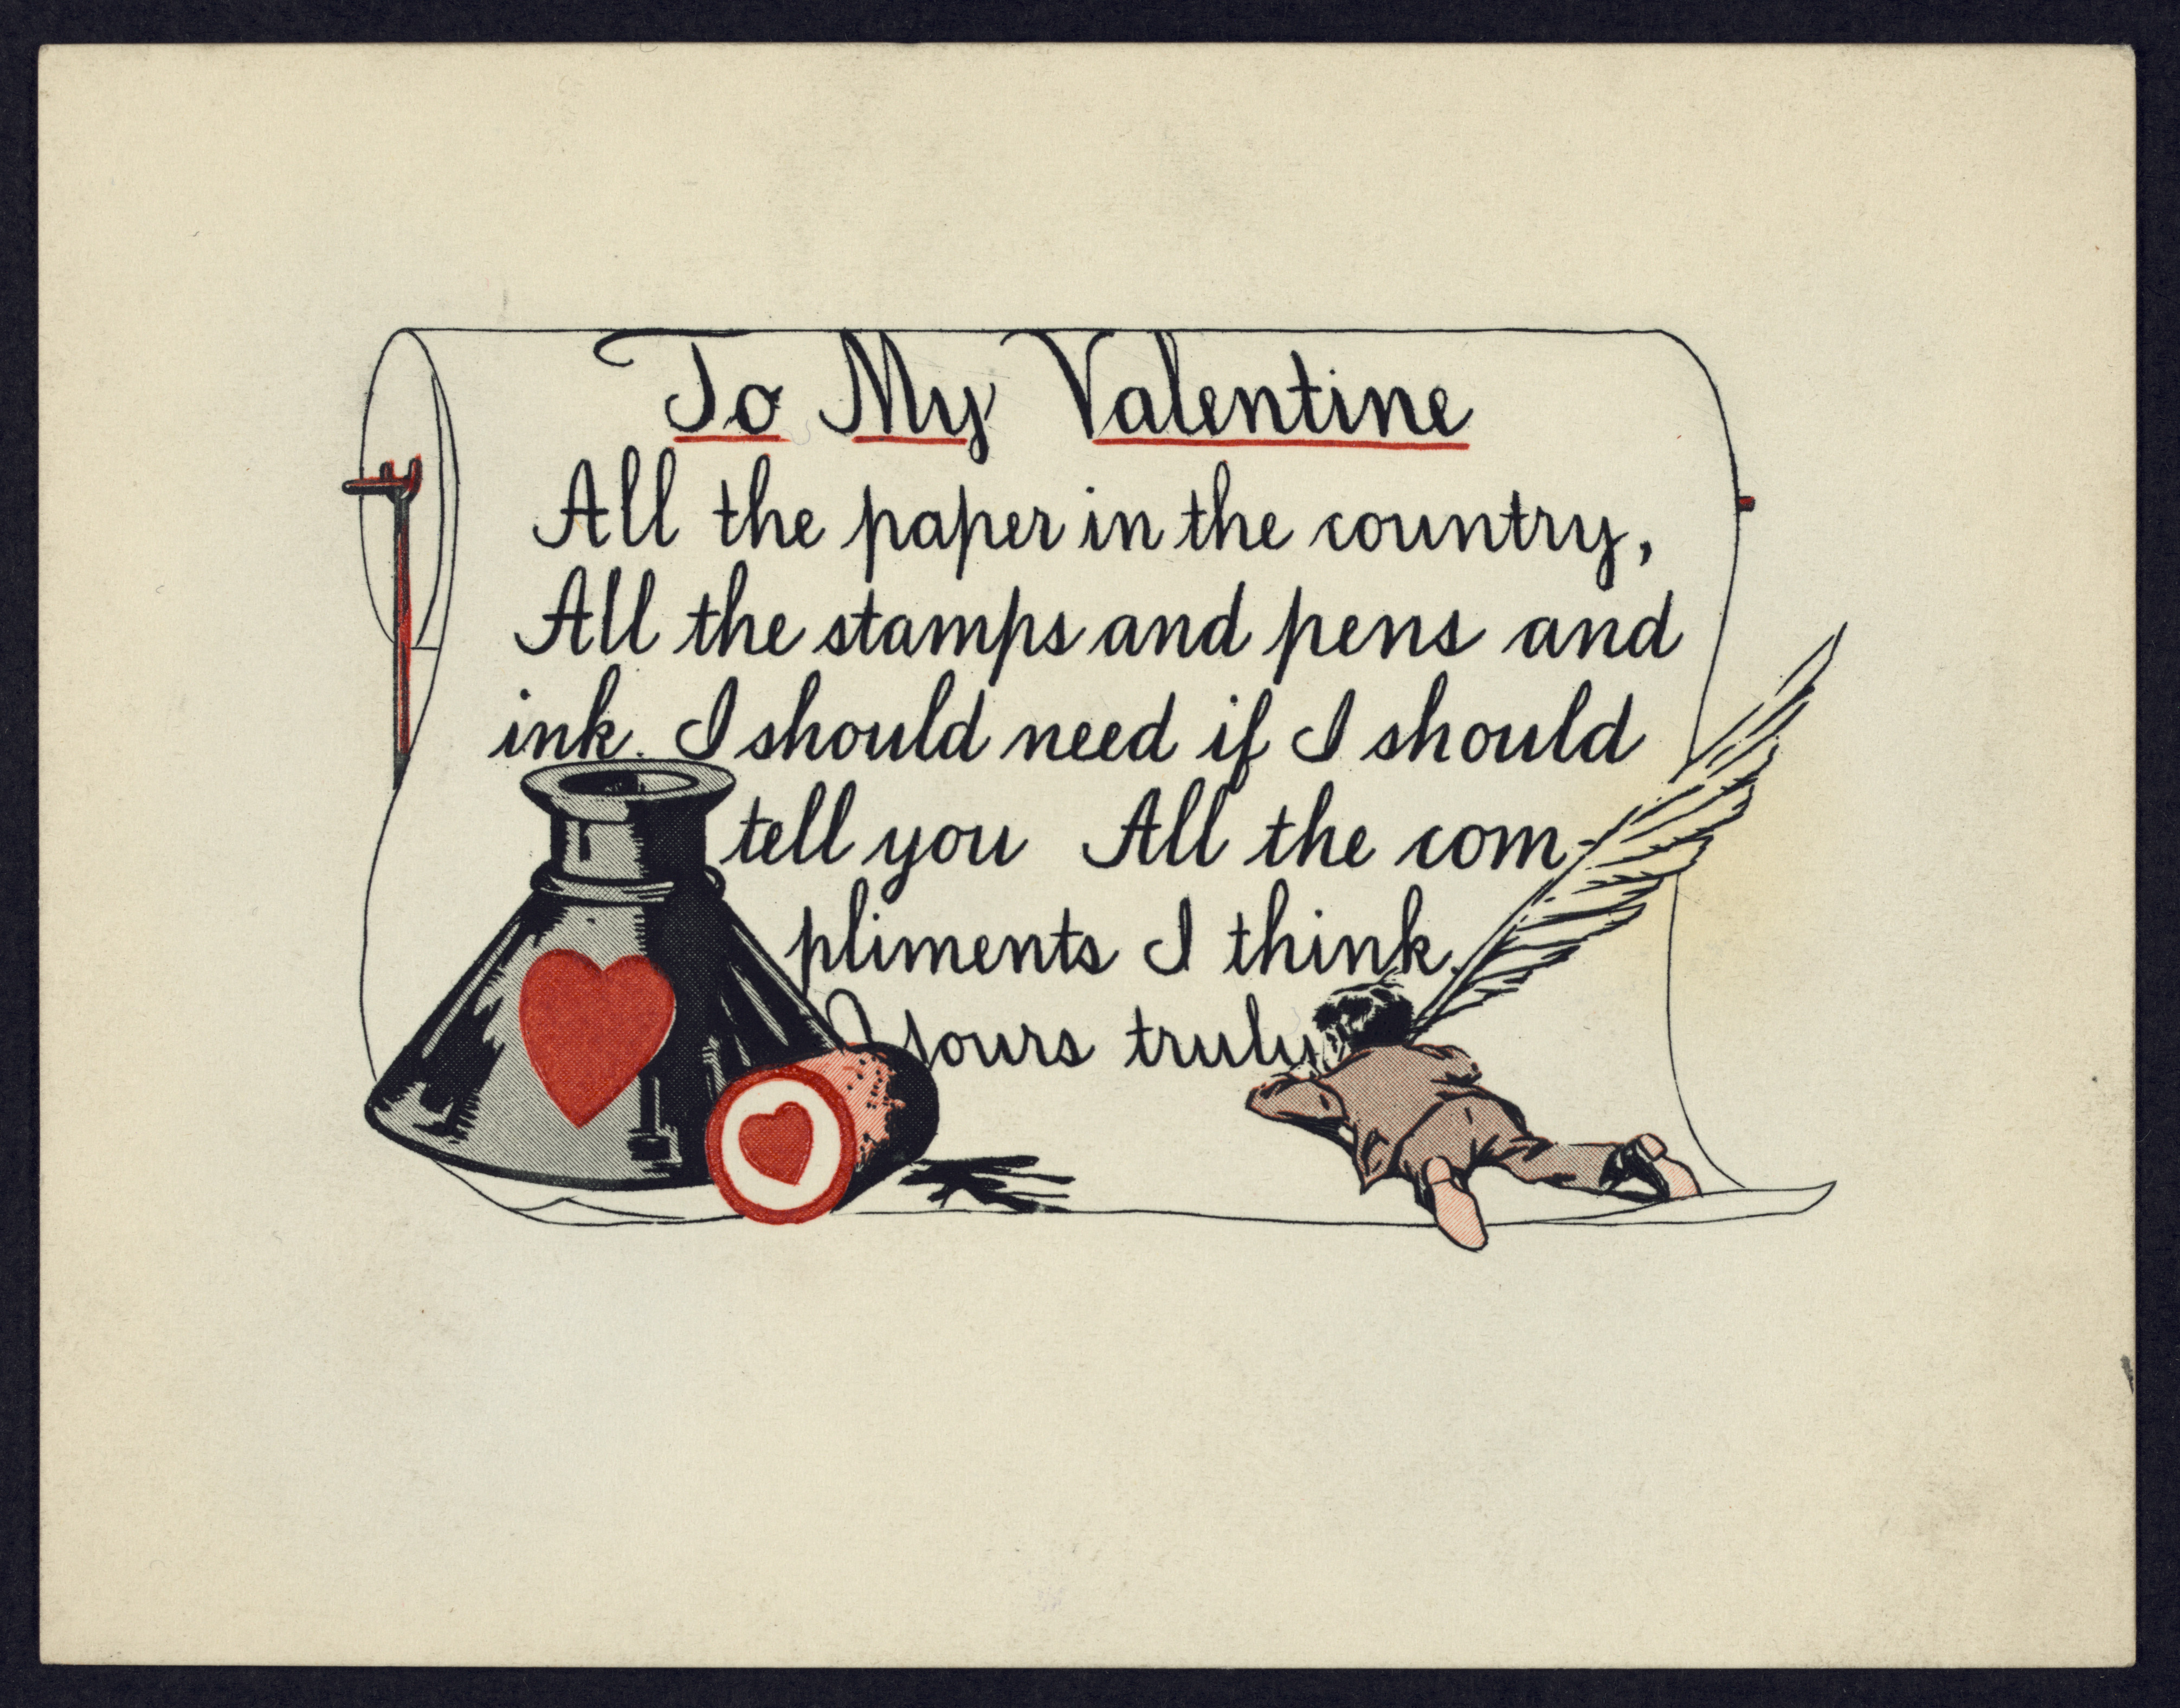 To My Valentine
All the paper in the country,
All the stamps and pens and
ink. I should need if I should
tell you All the com-
pliments I think.
Yours truly